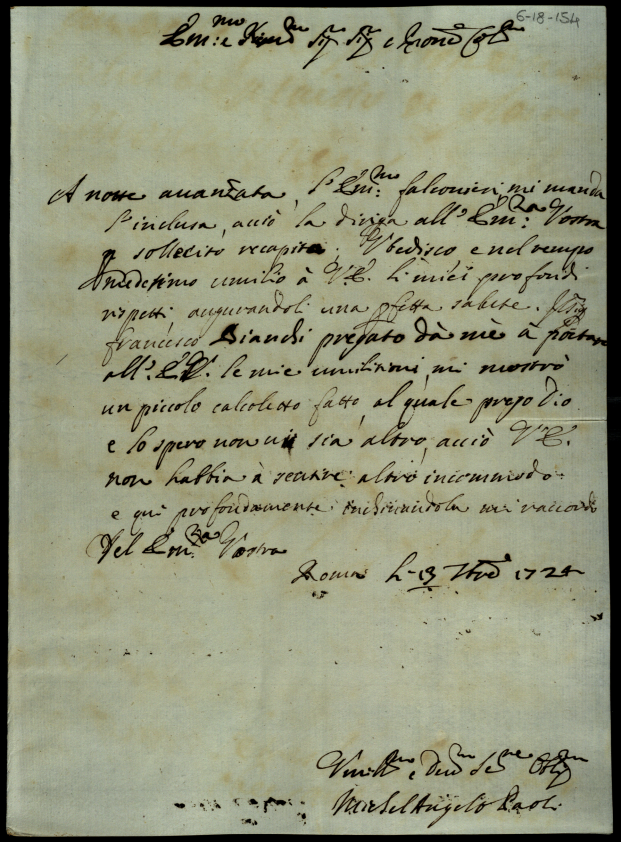 6-18-154
Em:mo e Revd:mo Sig:r Sig:r e Prone Col:mo
A notte avanzata, l'Em:mo falconieri mi manda
l'inclusa, acciò la diriga all'Em:za Vostra
p sollecito recapito. Ubedisco e nel tempo
medesimo umilio à V.E. li miei profondi
rispetti augurandoli una pfetta salute. Il Sig:
francesco Bianchi pregato dà mè à portare
all'E.V. le mie umiliationi, mi mostrò
un piccolo calcoletto fatto, al quale prego Dio
e lo spero non vi sia altro, acciò V.E.
non habbia à sentire altro incommodo
e qui profondamente inchinandola mi raccordo
Del Em:za Vostra
Roma li 13 7bre 1724
Umill:mo e Dev:mo Se:re Obl:mo
Michel Angelo Paoli